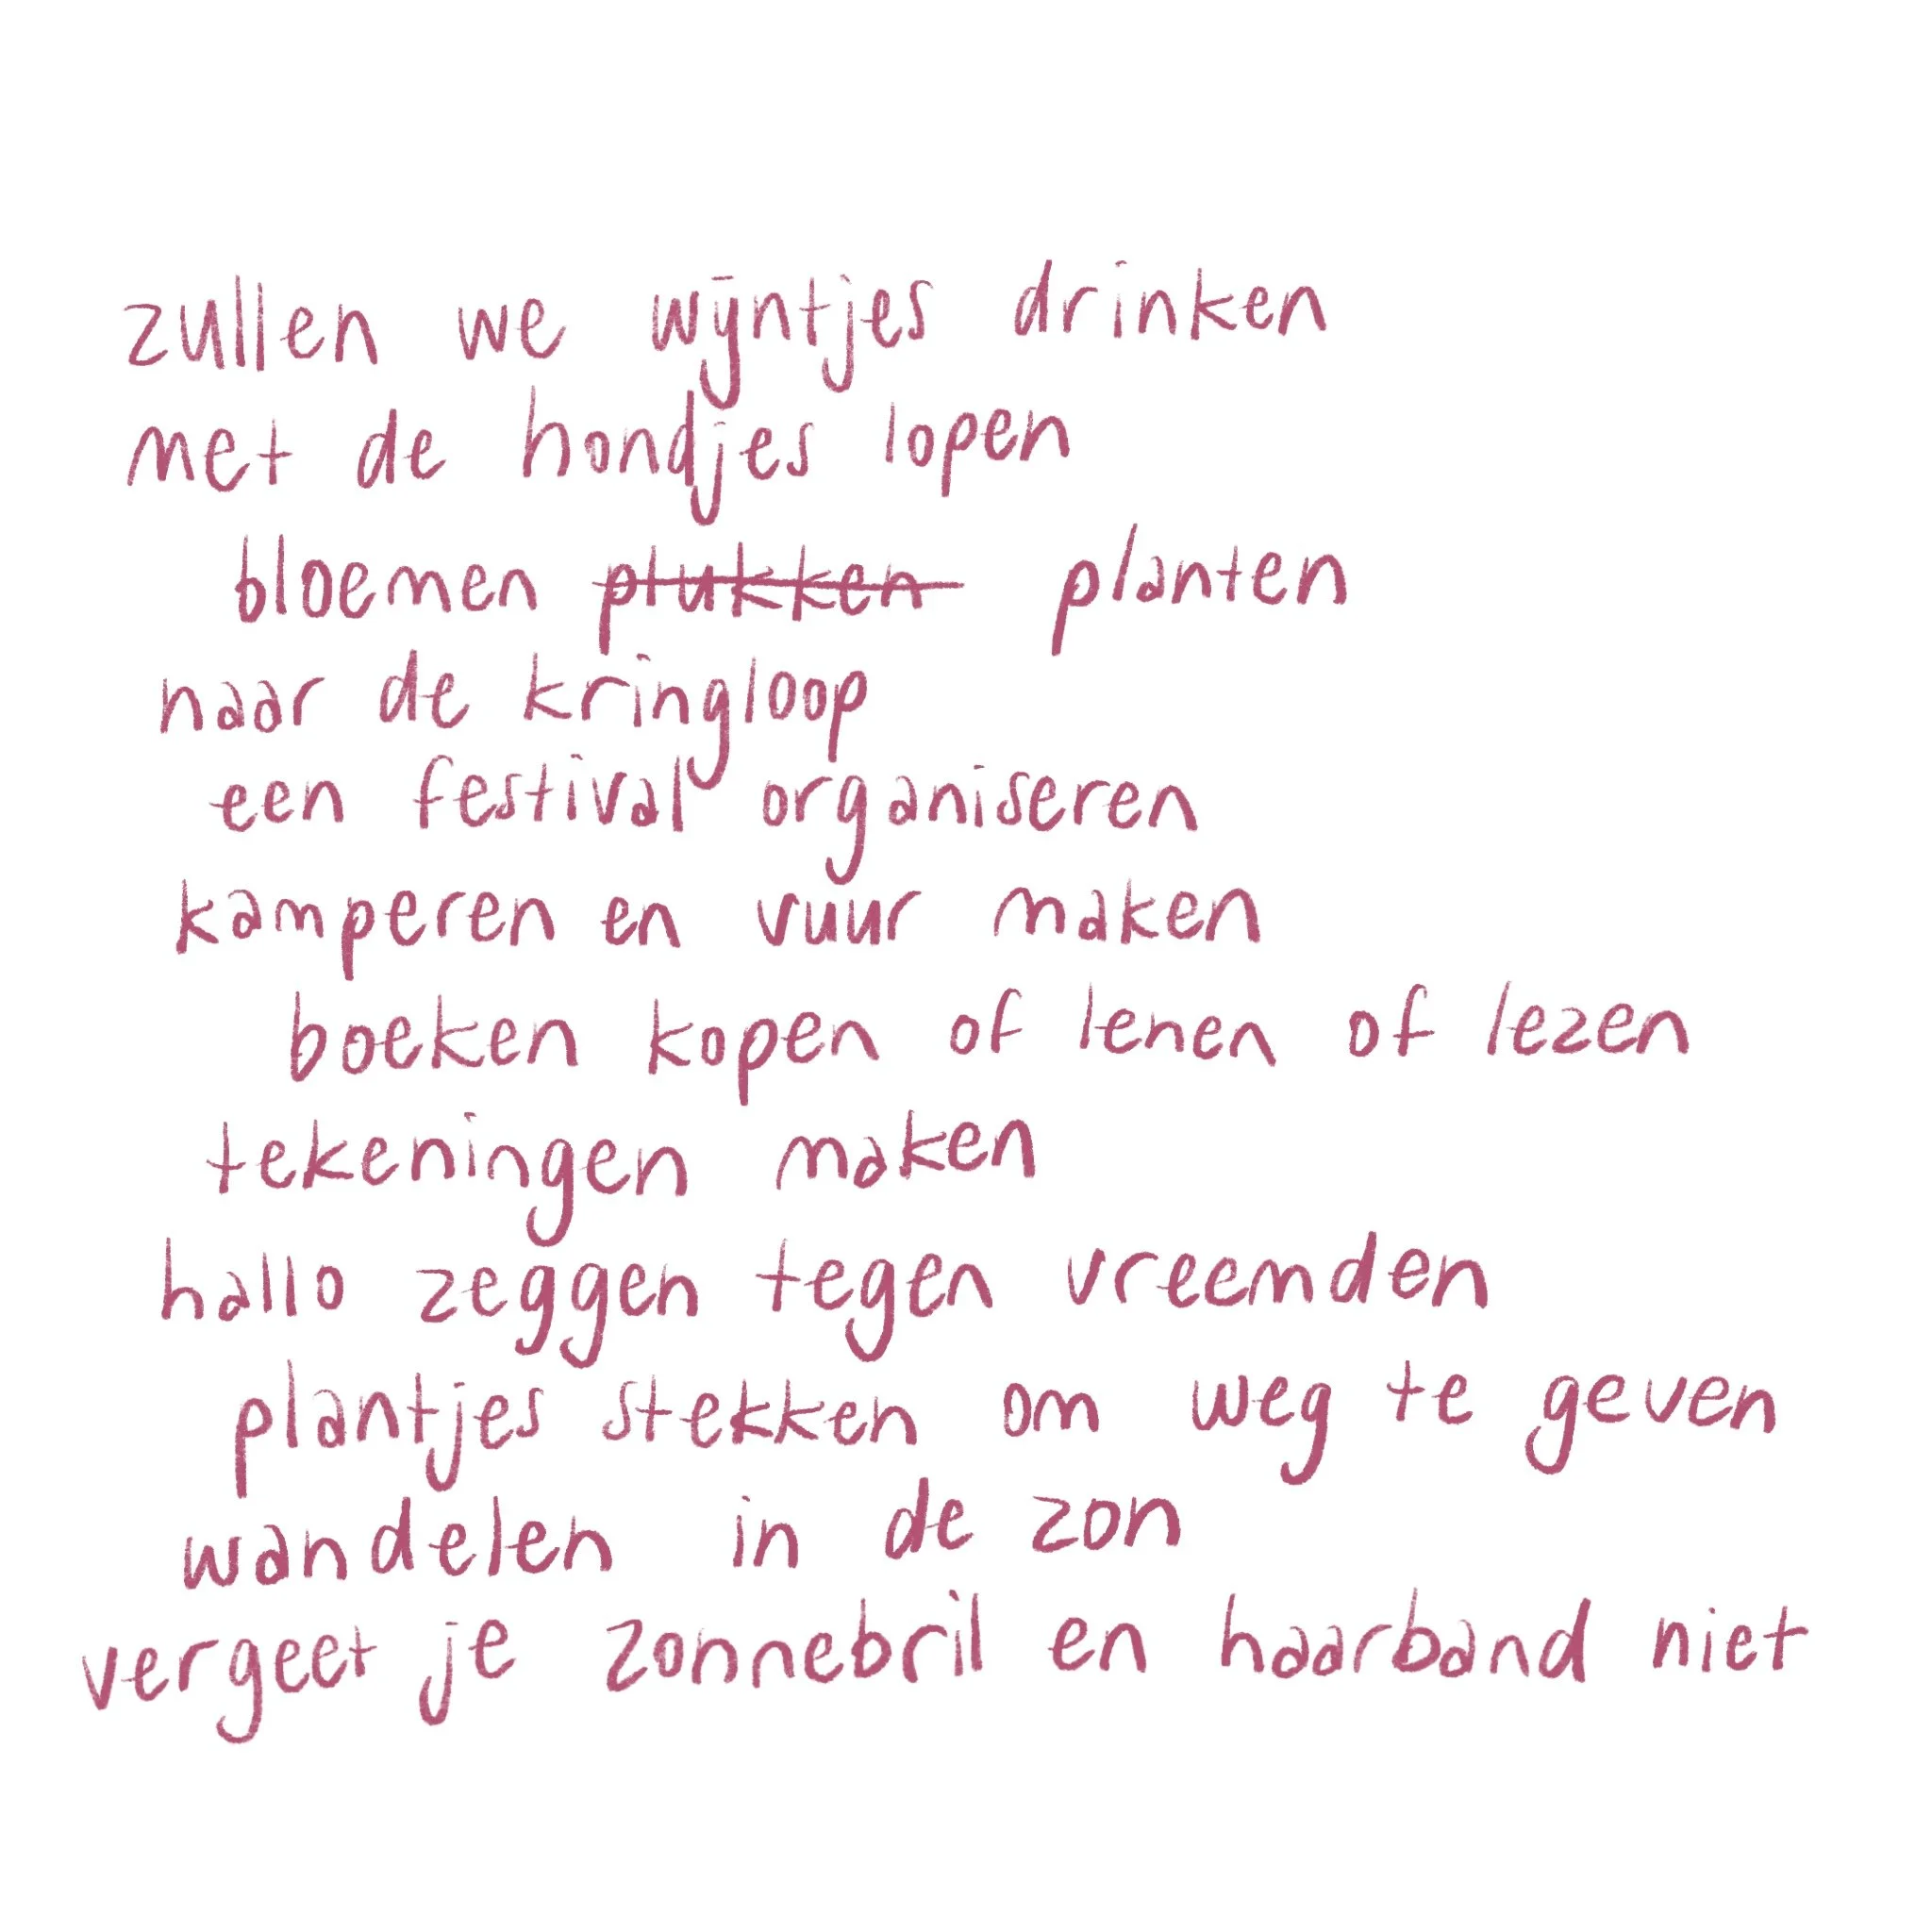 zullen we wijntjes drinken
met de hondjes lopen
bloemen plukken planten
naar de kringloop
een festival organiseren
kamperen en vuur maken
boeken kopen of lenen of lezen
tekeningen maken
hallo zeggen tegen vreemden
plantjes stekken om weg te geven
wandelen in de zon
vergeet je zonnebril en haarband niet